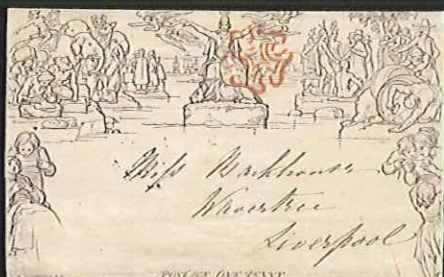 Miss Backhouse
Wavertree
Liverpool
POSTAGE ONE PENNY.